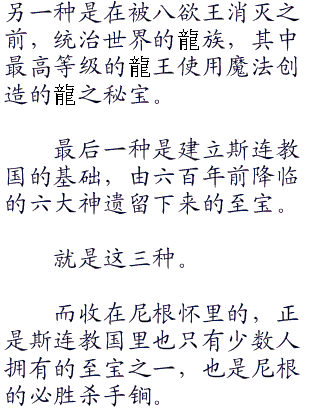 另一种是在被八欲王消灭之
前，统治世界的龍族，其中
最高等级的龍王使用魔法创
造的龍之秘宝。
最后一种是建立斯连教
国的基础，由六百年前降临
的六大神遗留下来的至宝。
就是这三种。
而收在尼根怀里的，正
是斯连教国里也只有少数人
拥有的至宝之一，也是尼根
的必胜杀手锏。